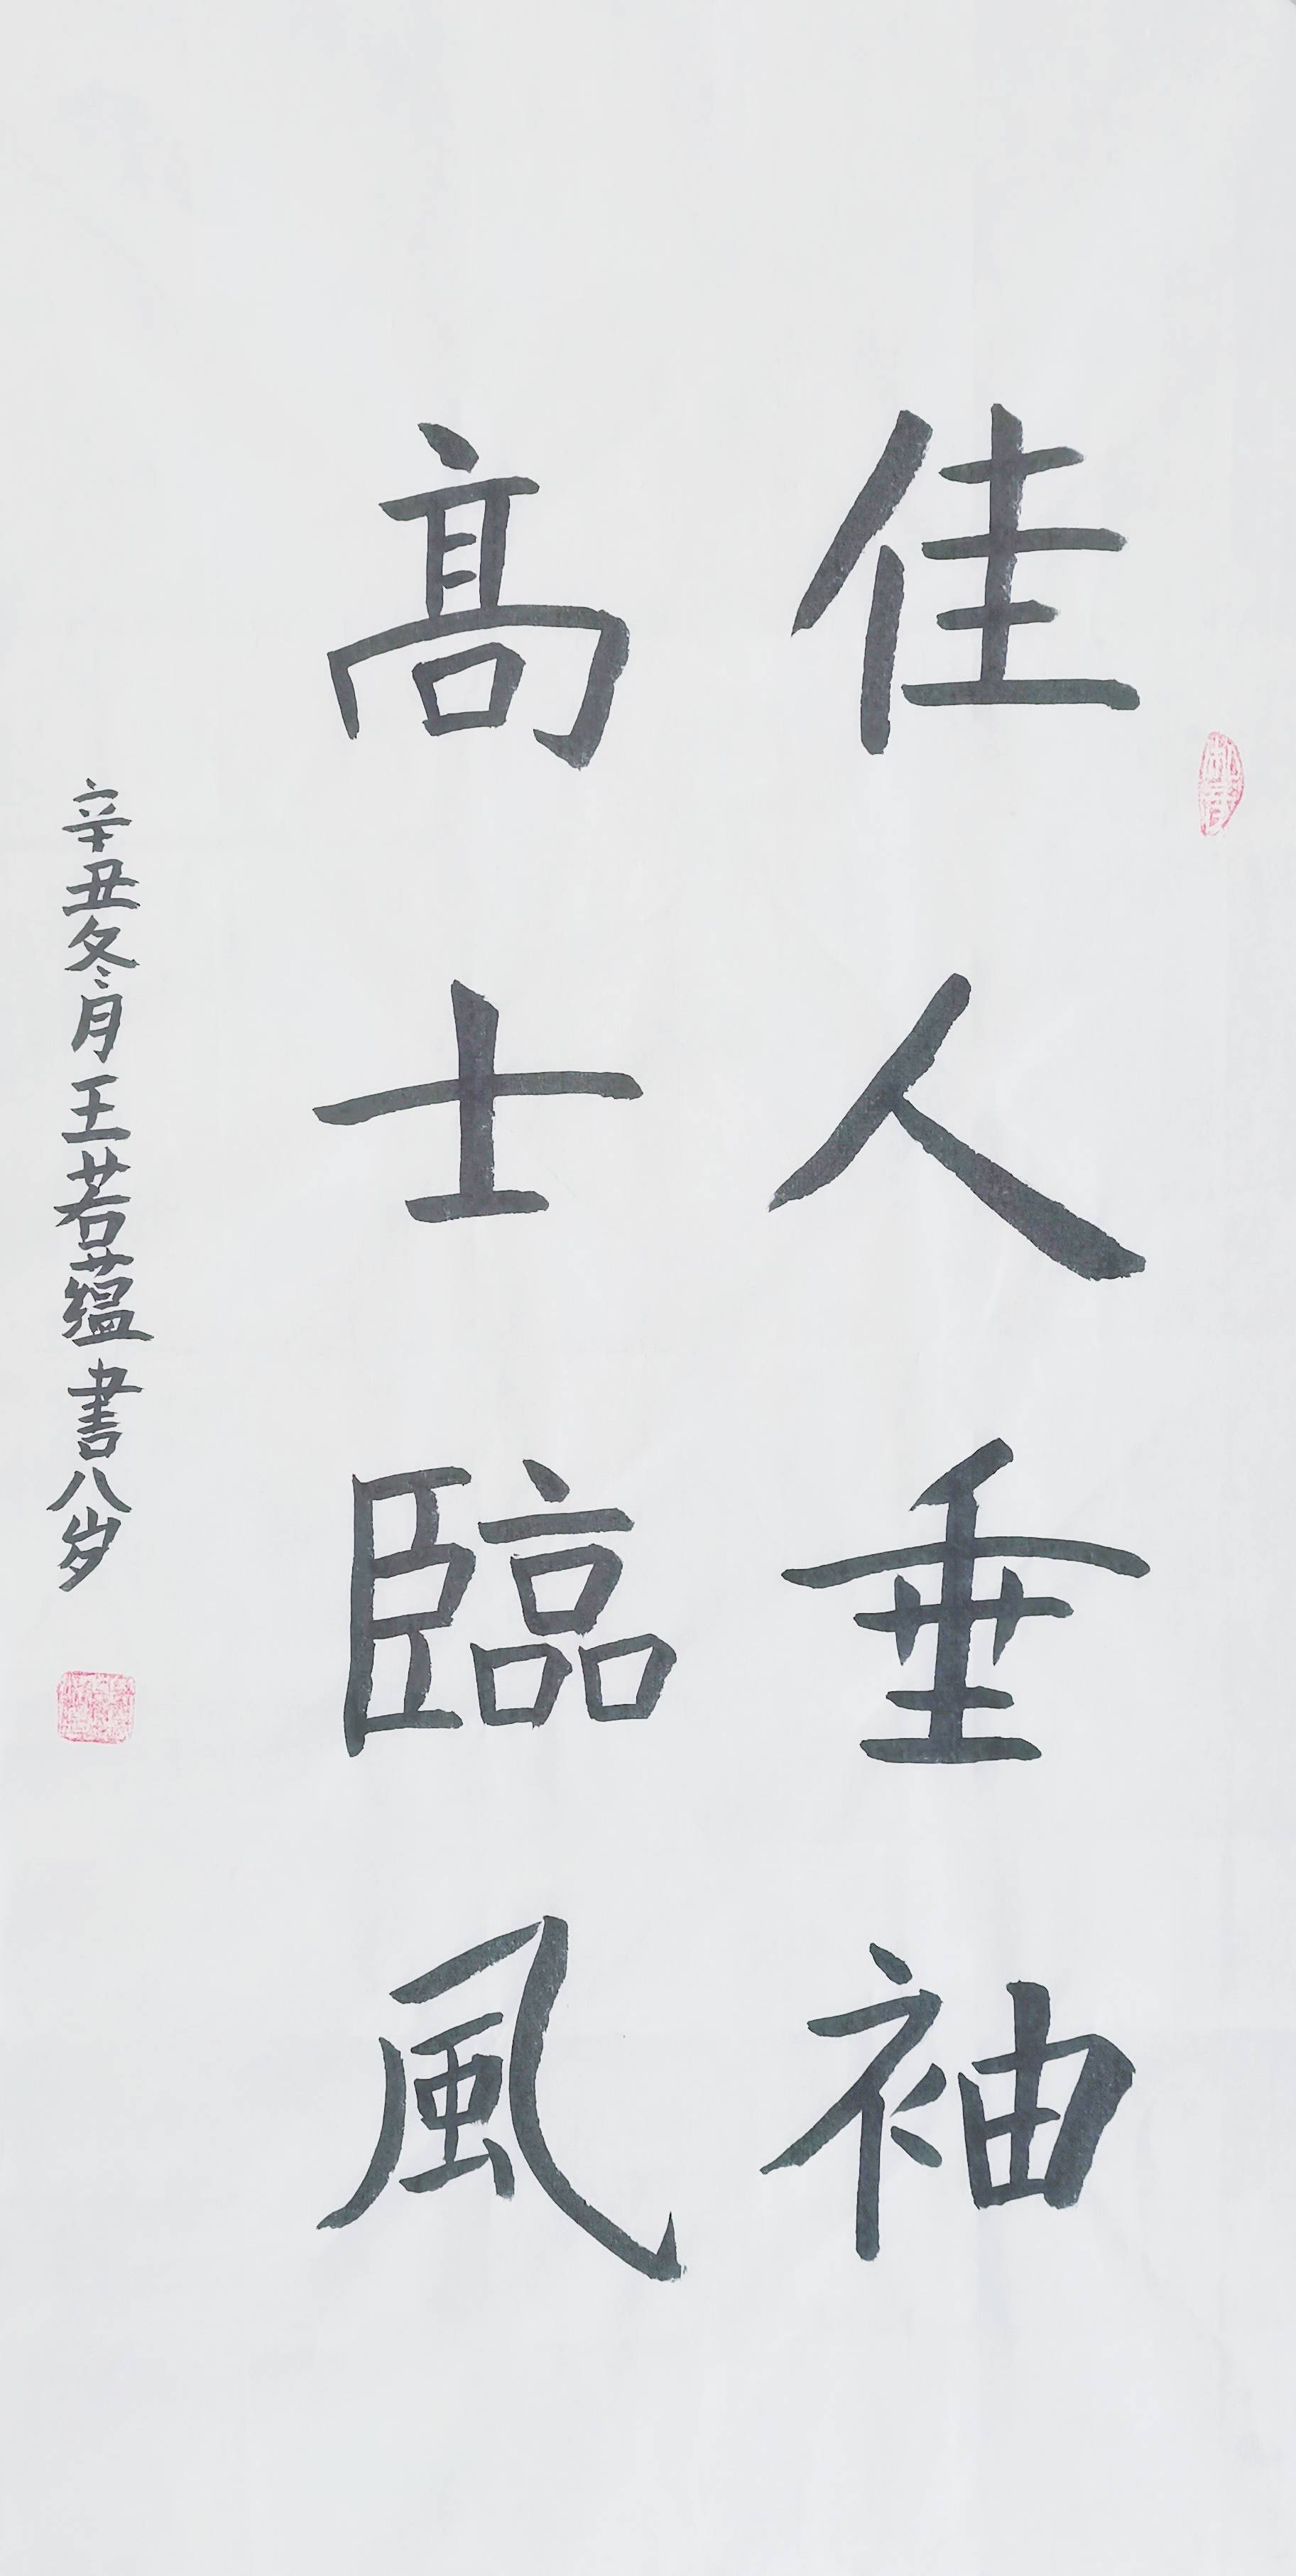 佳人垂袖
髙士臨風
辛丑冬月王若蕴書八岁